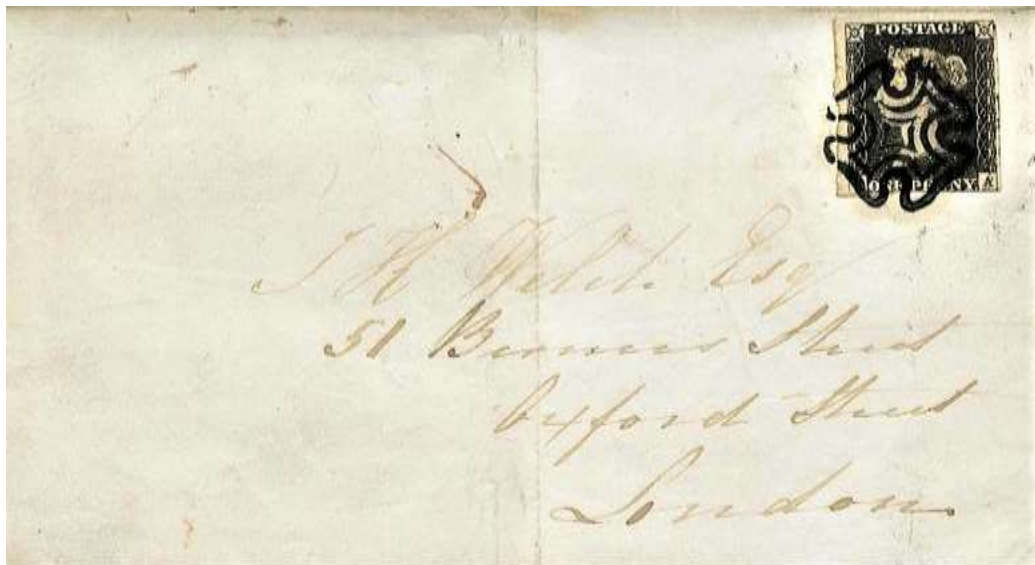 POSTAGE
ONE PENNY A
J H Welch Esq
51 Berners Street
Oxford Street
London